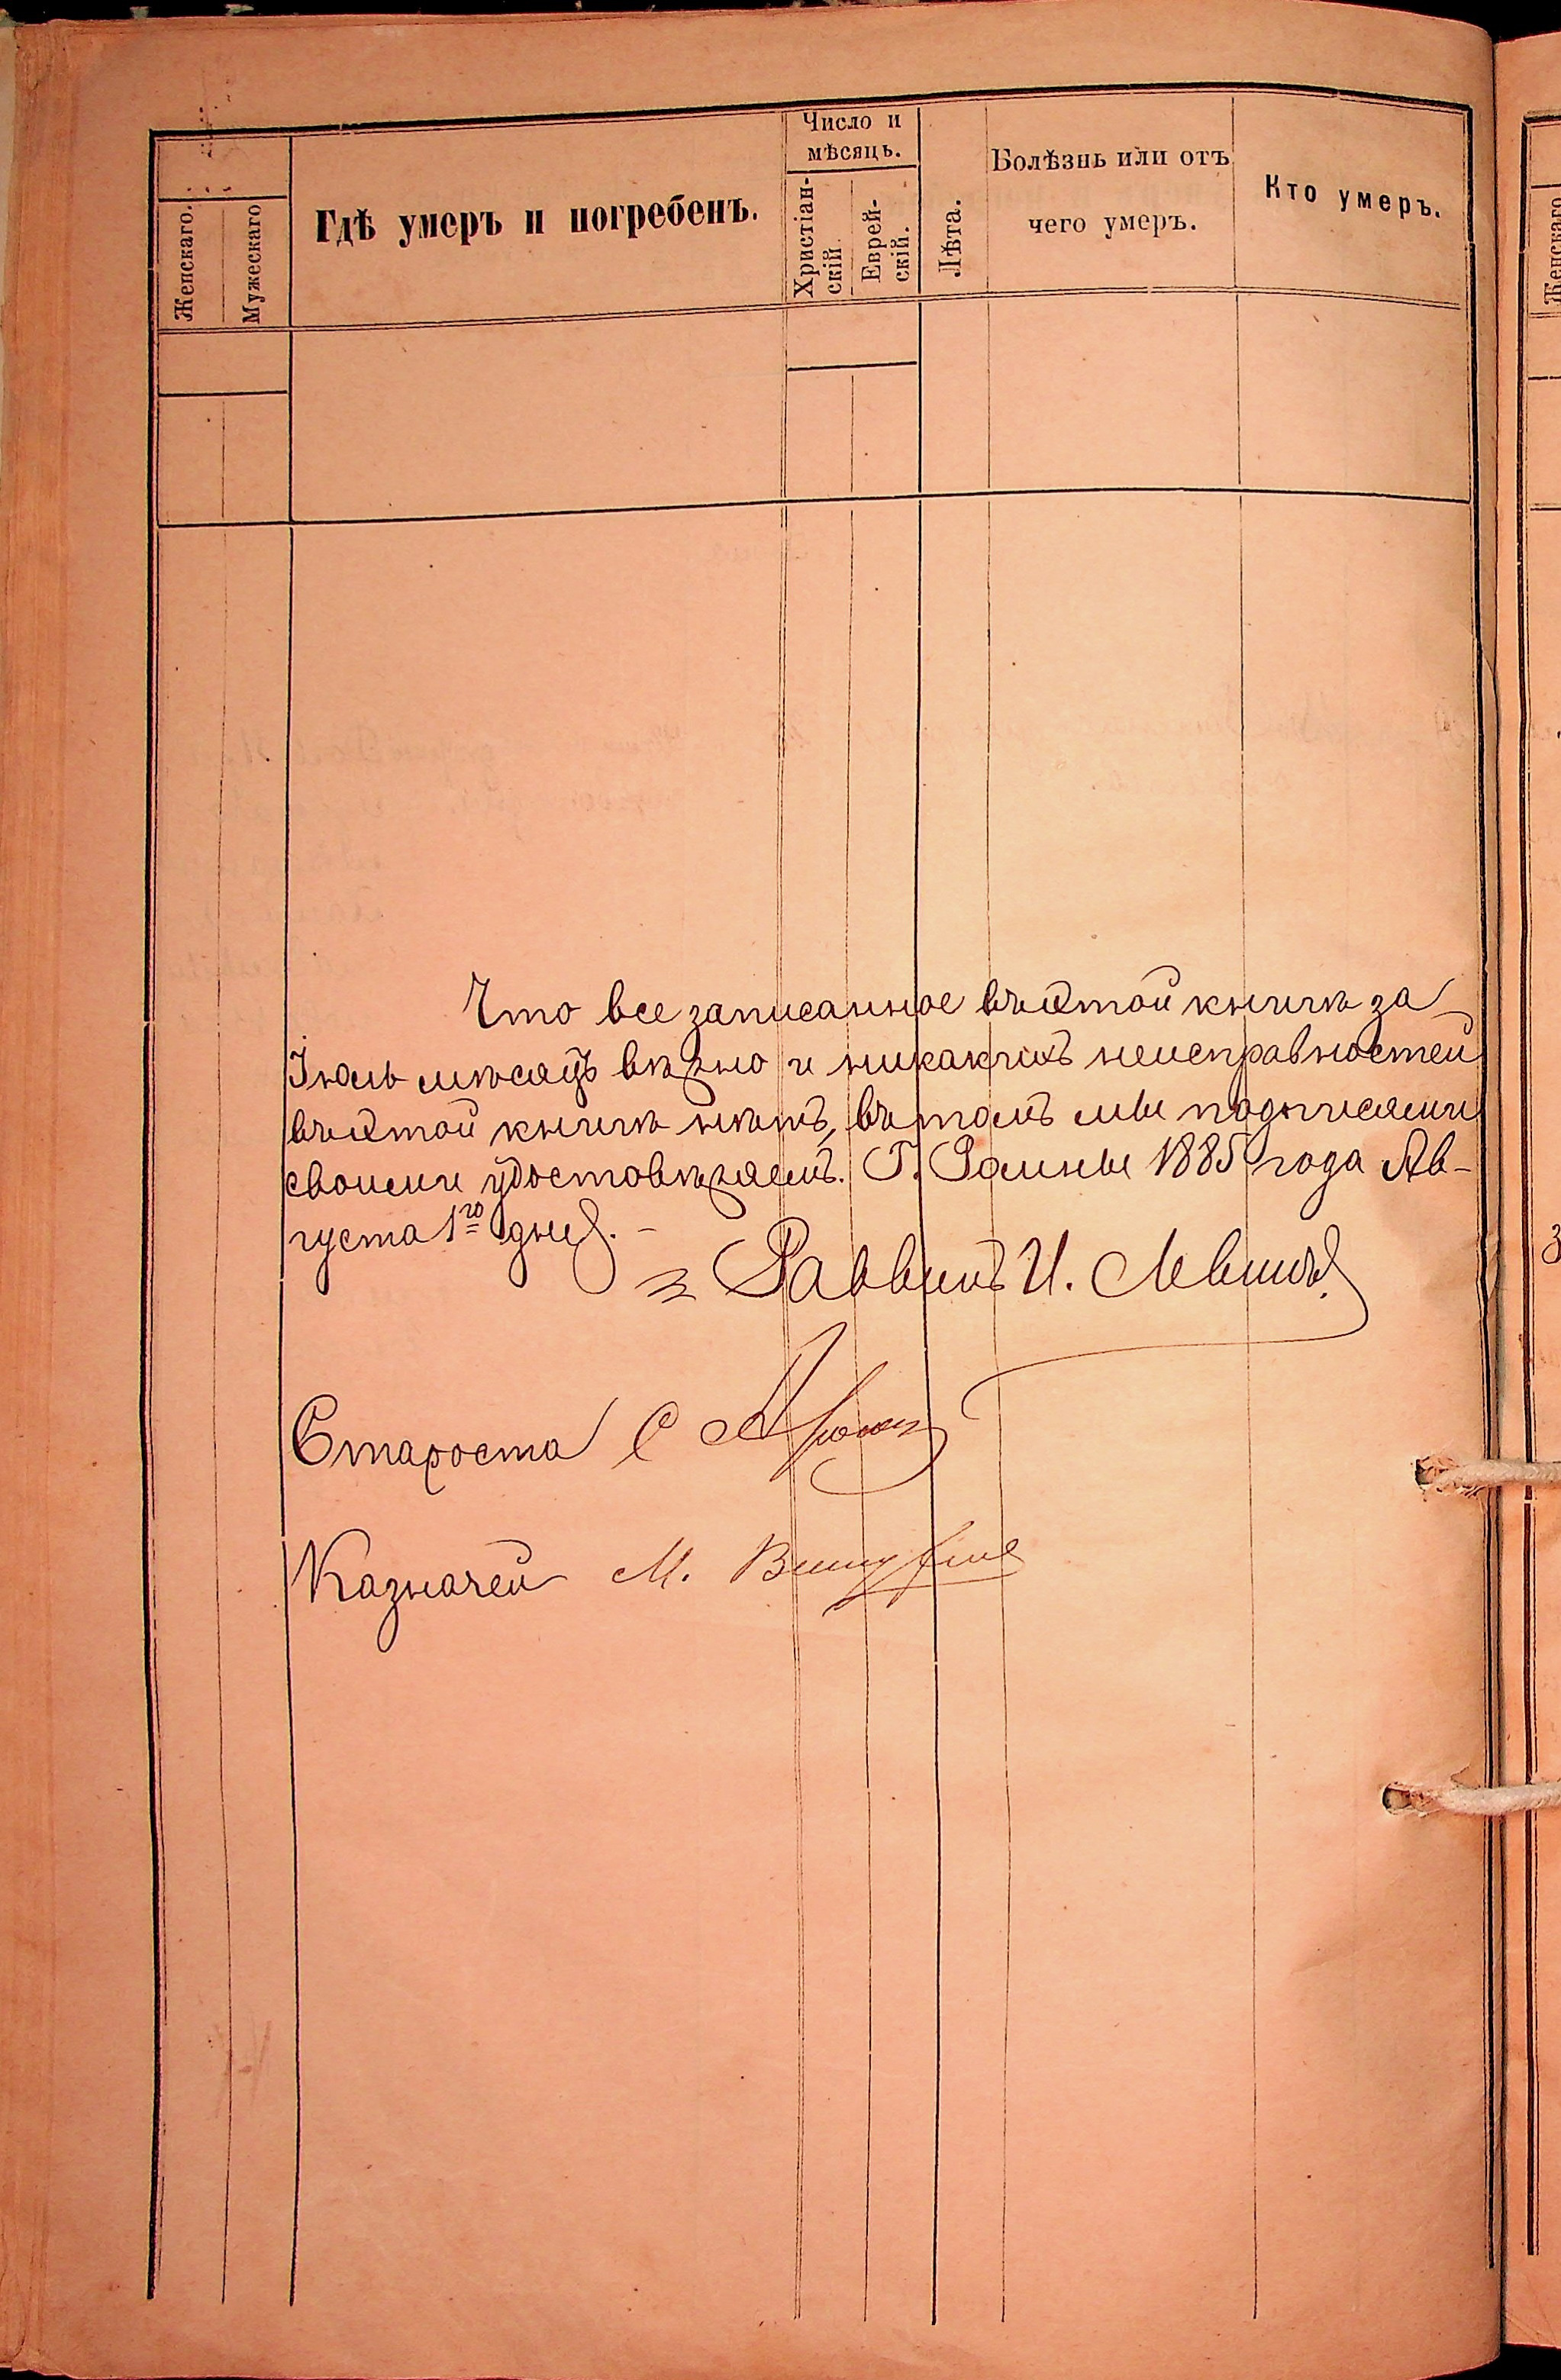 Женскаго.
Мужескаго
Гдѣ умеръ и погребенъ.
Число и
мѣсяцъ.
Христіан-
скій.
Еврей-
скій.
Лѣта.
Болѣзнь или отъ
чего умеръ.
Кто умеръ.
Что все записанное въ этой книгѣ за
Іюль мѣсяцъ вѣрно и никакихъ неисправностей
въ этой книгѣ нѣтъ, въ томъ мы подписями
своими удостовѣряемъ. Г. Ромны 1885 года Ав-
густа 1го дня. -
Раввинъ И. Левинъ
Староста С
Казначей М.
Женскаго